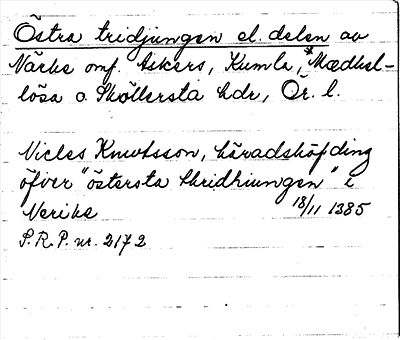 Östra tridjungen el. delen av
Närke omf. Askers, Kumla, *Mædhal-
lösa o. Sköllersta hdr, Ör. l.
Niclas Knwtsson, häradshöfding
öfver "östersta thridhiungen" i
Nerike 18/11 1385
S.R.P. nr. 2172